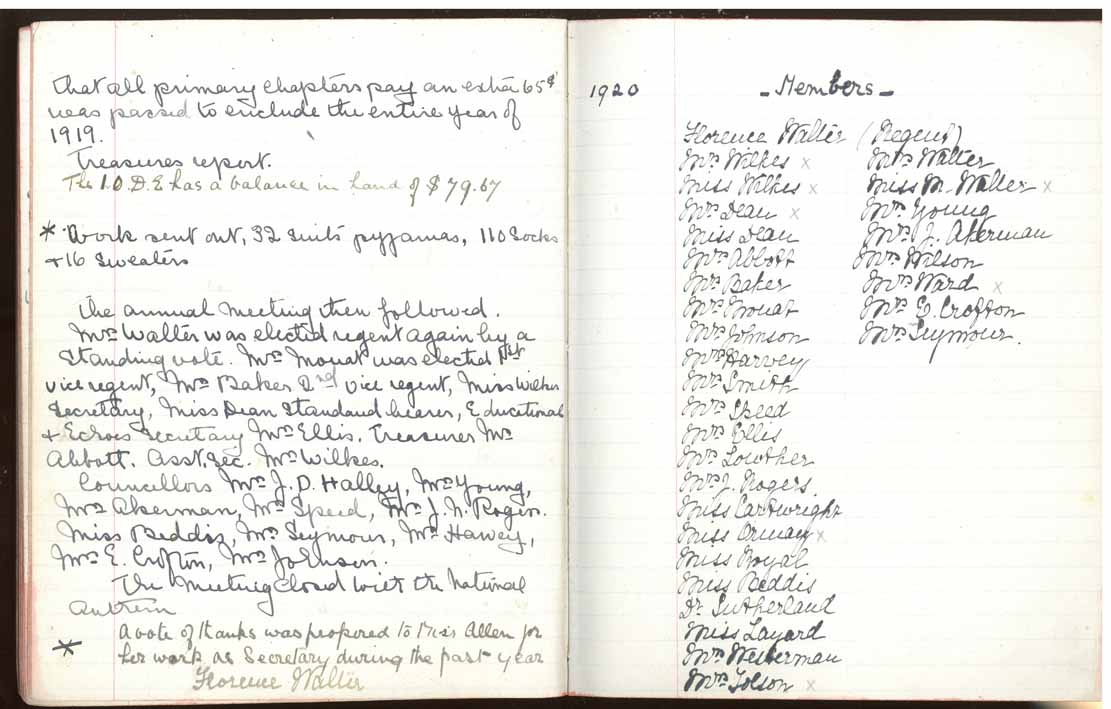 that all primary chapters pay an extra 65¢
was passed to include the entire year of
1919.
Treasures report.
The I.O.D.E has a balance in hand of $79.67
* Work sent out, 32 suits pyjamas, 110 Socks
+ 16 Sweaters
The annual meeting then followed.
Mrs Walter was elected regent again by a
standing vote. Mrs Mouat was elected 1st
vice regent, Mrs Baker 2nd vice regent, Miss Wilkes
Secretary, Miss Dean Standard bearer, Educational
+ Echoes Secretary Mrs Ellis. Treasurer Mrs
Abbott. Asst. Sec. Mrs Wilkes.
Councillors Mrs J. D. Halley, Mrs Young,
Mrs Akerman, Mrs Speed, Mrs J. N. Rogers.
Miss Beddis, Mrs Seymour, Mrs Harvey,
Mrs E. Crofton, Mrs Johnson.
The meeting closed with the National
Anthem
* A vote of thanks was proposed to Miss Allen for
her work as Secretary during the past year
Florence Walter
1920 - Members -
Florence Walter (Regent)
Mrs Wilkes x Mrs Walter
Miss Wilkes x Miss M. Walter x
Mrs Dean x Mrs Young
Miss Dean Mrs J. Akerman
Mrs Abbott Mrs Wilson
Mrs Baker Mrs Ward x
Mrs Mouat Mrs E. Crofton
Mrs Johnson Mrs Seymour.
Mrs Harvey
Mrs Smith
Mrs Speed
Mrs Ellis
Mrs Lowther
Mrs J. Rogers.
Miss Cartwright
Miss x
Miss Royal
Miss Beddis
Dr Sutherland
Miss Layard
Mrs Westerman
Mrs Tolson x